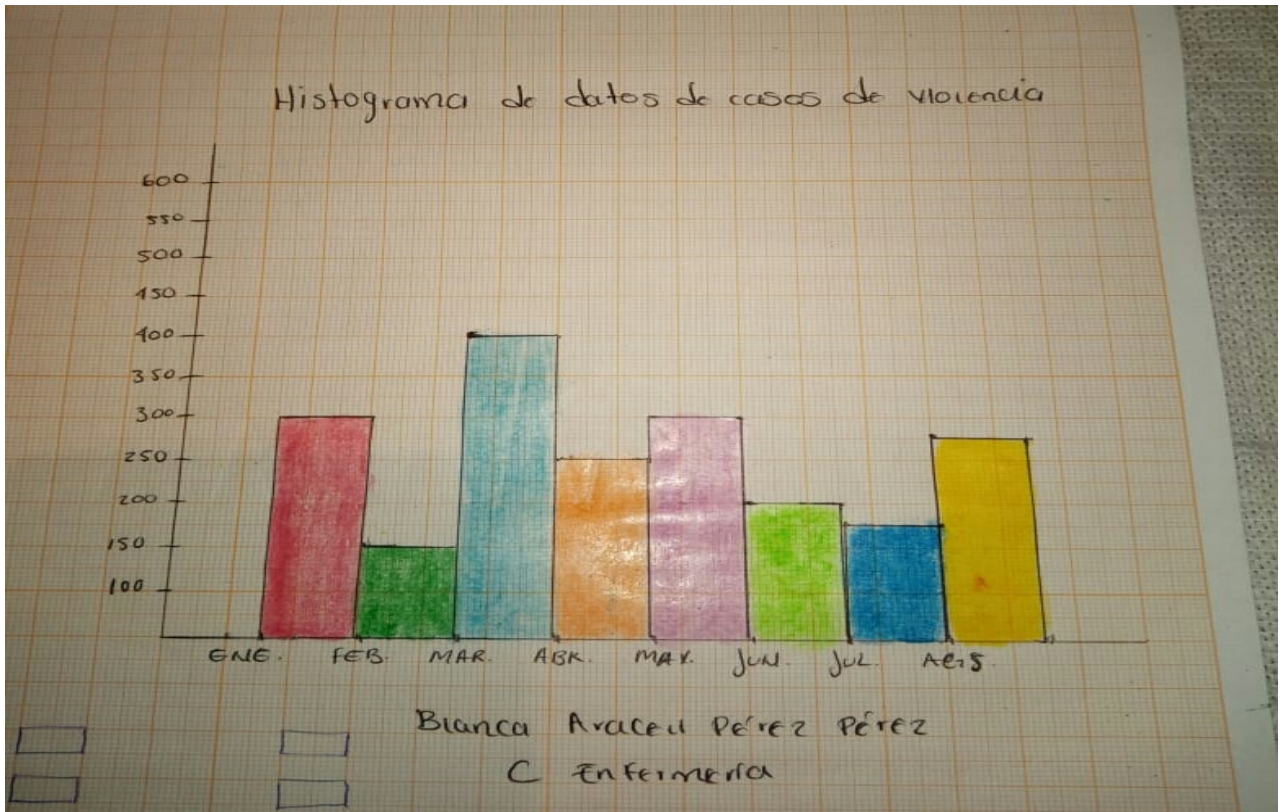 Histograma de datos de casos de violencia
600
550
500
450
400
350
300
250
200
150
100
ENE. FEB. MAR. ABR. MAY. JUN. JUL. AGS.
Blanca Araceli Pérez Pérez
C Enfermería